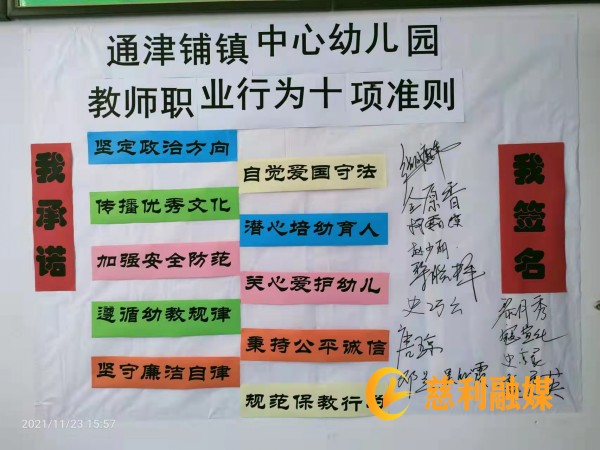 通津铺镇中心幼儿园
教师职业行为十项准则
我承诺
坚定政治方向
自觉爱国守法
传播优秀文化
潜心培幼育人
加强安全防范
关心爱护幼儿
遵循幼教规律
秉持公平诚信
坚守廉洁自律
规范保教行
我签名
全原香
赵少丽
史巧云
唐琼
慈利融媒
2021/11/23 15:57